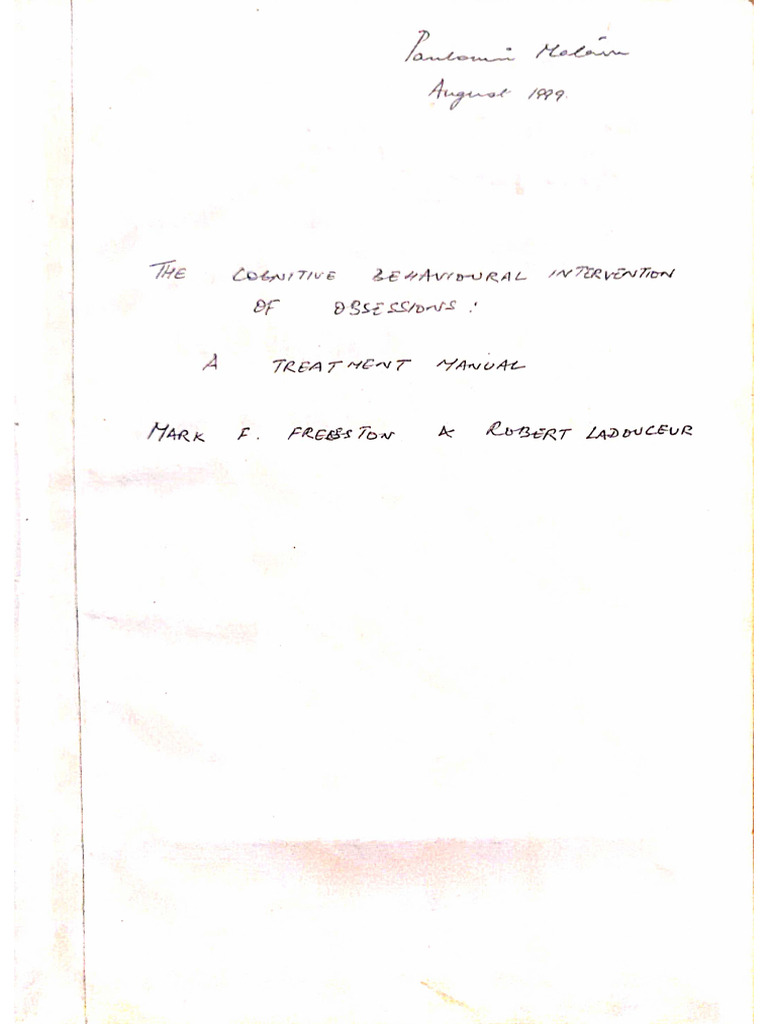 Paulomi Matam
August 1999.
THE COGNITIVE BEHAVIOURAL INTERVENTION
OF OBSESSIONS:
A TREATMENT MANUAL
MARK F. FREESTON & ROBERT LADOUCEUR